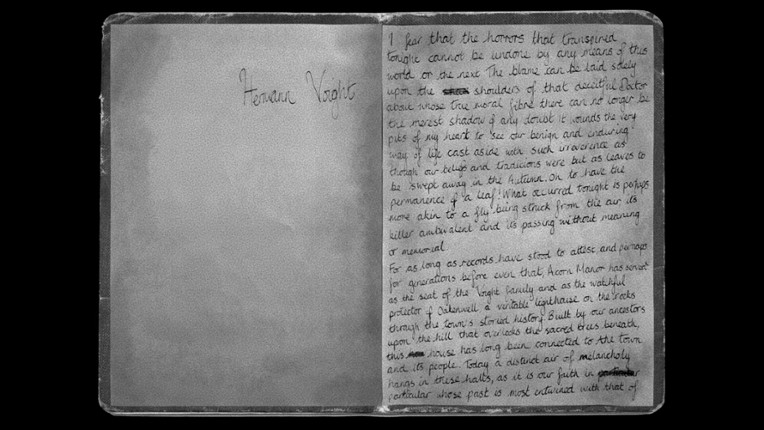 Hermann Voight
I fear that the horrors that transpired
tonight cannot be undone by any means of this
world or the next The blame can be laid solely
upon the shoulders of that deceitful Doctor
about whose true moral fibre there can no longer be
the merest shadow of any doubt it wounds the very
pits of my heart to see our benign and enduring
way of life cast aside with such irreverence as
though our beliefs and traditions were but as leaves to
be swept away in the Autumn. Oh to have the
permanence of a leaf! What occurred tonight is perhaps
more akin to a fly being struck from the air, its
killer ambivalent and its passing without meaning
or memorial
For as long as records have stood to attest, and perhaps
for generations before even that, Acorn Manor has served
as the seat of the Voight family and as the watchful
protector of Oakenwell a veritable lighthouse on the rocks
through the town's storied history. Built by our ancestors
upon the hill that overlooks the sacred trees beneath,
this house has long been connected to the town
and its people. Today a distinct air of melancholy
hangs in these halls, as it is our faith in
particular whose past is most entwined with that of